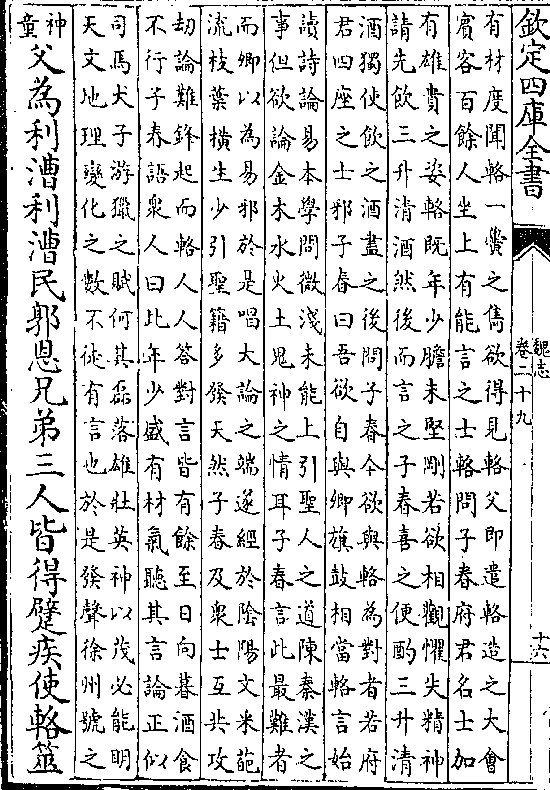 欽定四庫全書
魏志
卷二十九
十六
有材度聞輅一黌之儁欲得見輅父即遣輅造之大會
賓客百餘人坐上有能言之士輅問子春府君名士加
有雄貴之姿輅既年少膽未堅剛若欲相觀懼失精神
請先飲三升清酒然後而言之子春喜之便酌三升清
酒獨使飲之酒盡之後問子春今欲與輅為對者若府
君四座之士邪子春曰吾欲自與卿旗鼓相當輅言始
讀詩論易本學問微淺未能上引聖人之道陳秦漢之
事但欲論金木水火土鬼神之情耳子春言此最難者
而卿以為易邪於是唱大論之端遂經於陰陽文采葩
流枝葉橫生少引聖籍多發天然子春及衆士互共攻
劫論難鋒起而輅人人答對言皆有餘至日向暮酒食
不行子春語衆人曰此年少盛有材氣聽其言論正似
司馬犬子游獵之賦何其磊落雄壯英神以茂必能明
天文地理變化之數不徒有言也於是發聲徐州號之
神童
父為利漕利漕民郭恩兄弟三人皆得躄疾使輅筮